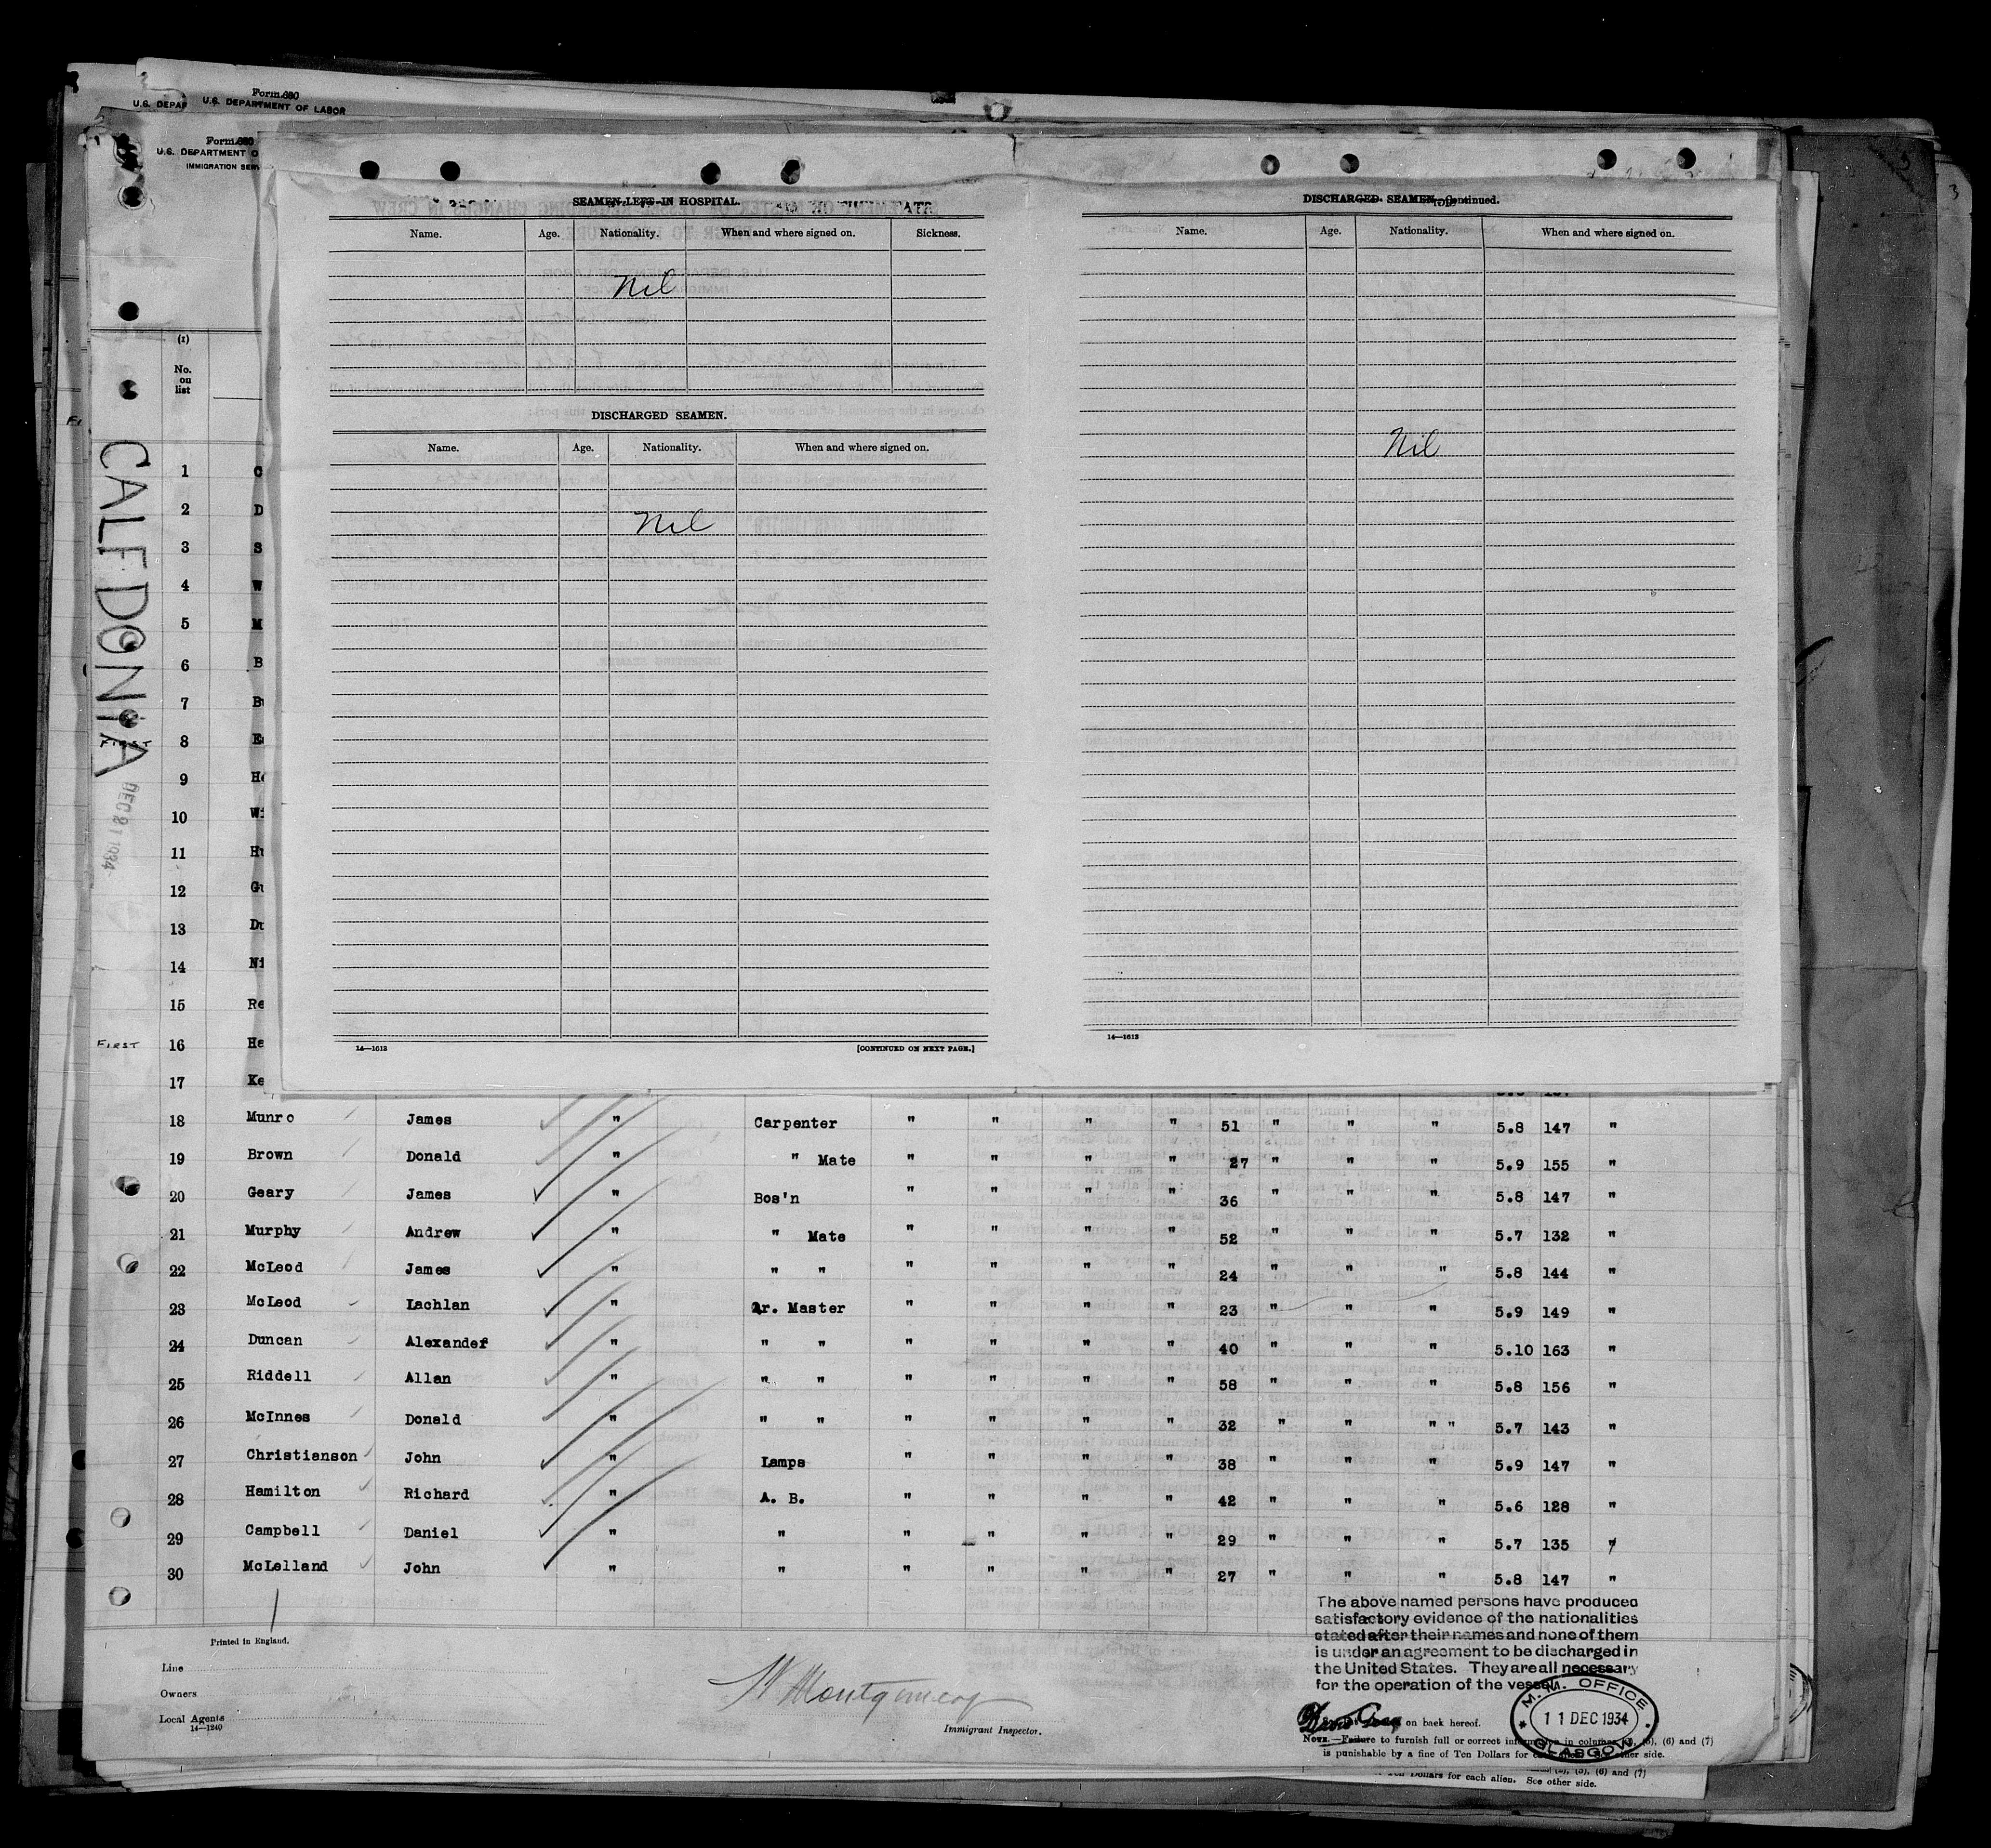 Form 680
U.S. DEPAR
U.S. DEPARTMENT OF LABOR
Form 680
U.S. DEPARTMENT O
IMMIGRATION SERV
3
SEAMEN LEFT IN HOSPITAL.
Name. Age. Nationality. When and where signed on. Sickness.
Nil
DISCHARGED SEAMEN.
Name. Age. Nationality. When and where signed on.
Nil
14—1613 [CONTINUED ON NEXT PAGE.]
DISCHARGED SEAMEN—Continued.
Name. Age. Nationality. When and where signed on.
Nil
14—1613
CALEDONIA
DEC 21 1934
(1)
No.
on
list
1
2 D
3 S
4 W
5 M
6 B
7 Bu
8 E
9 He
10 Wi
11 Hu
12 Gu
13 Du
14 Ni
15 Re
FIRST 16 Ha
17 Ke
18 Munro James " Carpenter " " " " 51 " " " 5.8 147 "
19 Brown Donald " " Mate " " " " 27 " " " 5.9 155 "
20 Geary James " Bos'n " " " " 36 " " " 5.8 147 "
21 Murphy Andrew " " Mate " " " " 52 " " " 5.7 132 "
22 McLeod James " " " " " " " 24 " " " 5.8 144 "
23 McLeod Lachlan " Qr. Master " " " " 23 " " " 5.9 149 "
24 Duncan Alexander " " " " " " " 40 " " " 5.10 163 "
25 Riddell Allan " " " " " " " 58 " " " 5.8 156 "
26 McInnes Donald " " " " " " " 32 " " " " 5.7 143 "
27 Christianson John " Lamps " " " " 38 " " " 5.9 147 "
28 Hamilton Richard " A. B. " " " " 42 " " " 5.6 128 "
29 Campbell Daniel " " " " " " 29 " " " 5.7 135 "
30 McLelland John " " " " " " 27 " " " 5.8 147 "
Printed in England.
Line
Owners
Local Agents
14—1240
W Montgomery
Immigrant Inspector.
The above named persons have produced
satisfactory evidence of the nationalities
stated after their names and none of them
is under an agreement to be discharged in
the United States. They are all necessary
for the operation of the vessel.
M.M. OFFICE
11 DEC 1934
GLASGOW
on back hereof.
NOTE.—Failure to furnish full or correct information in columns (5), (6) and (7)
is punishable by a fine of Ten Dollars for each alien. See other side.
(5), (6) and (7)
Ten Dollars for each alien. See other side.